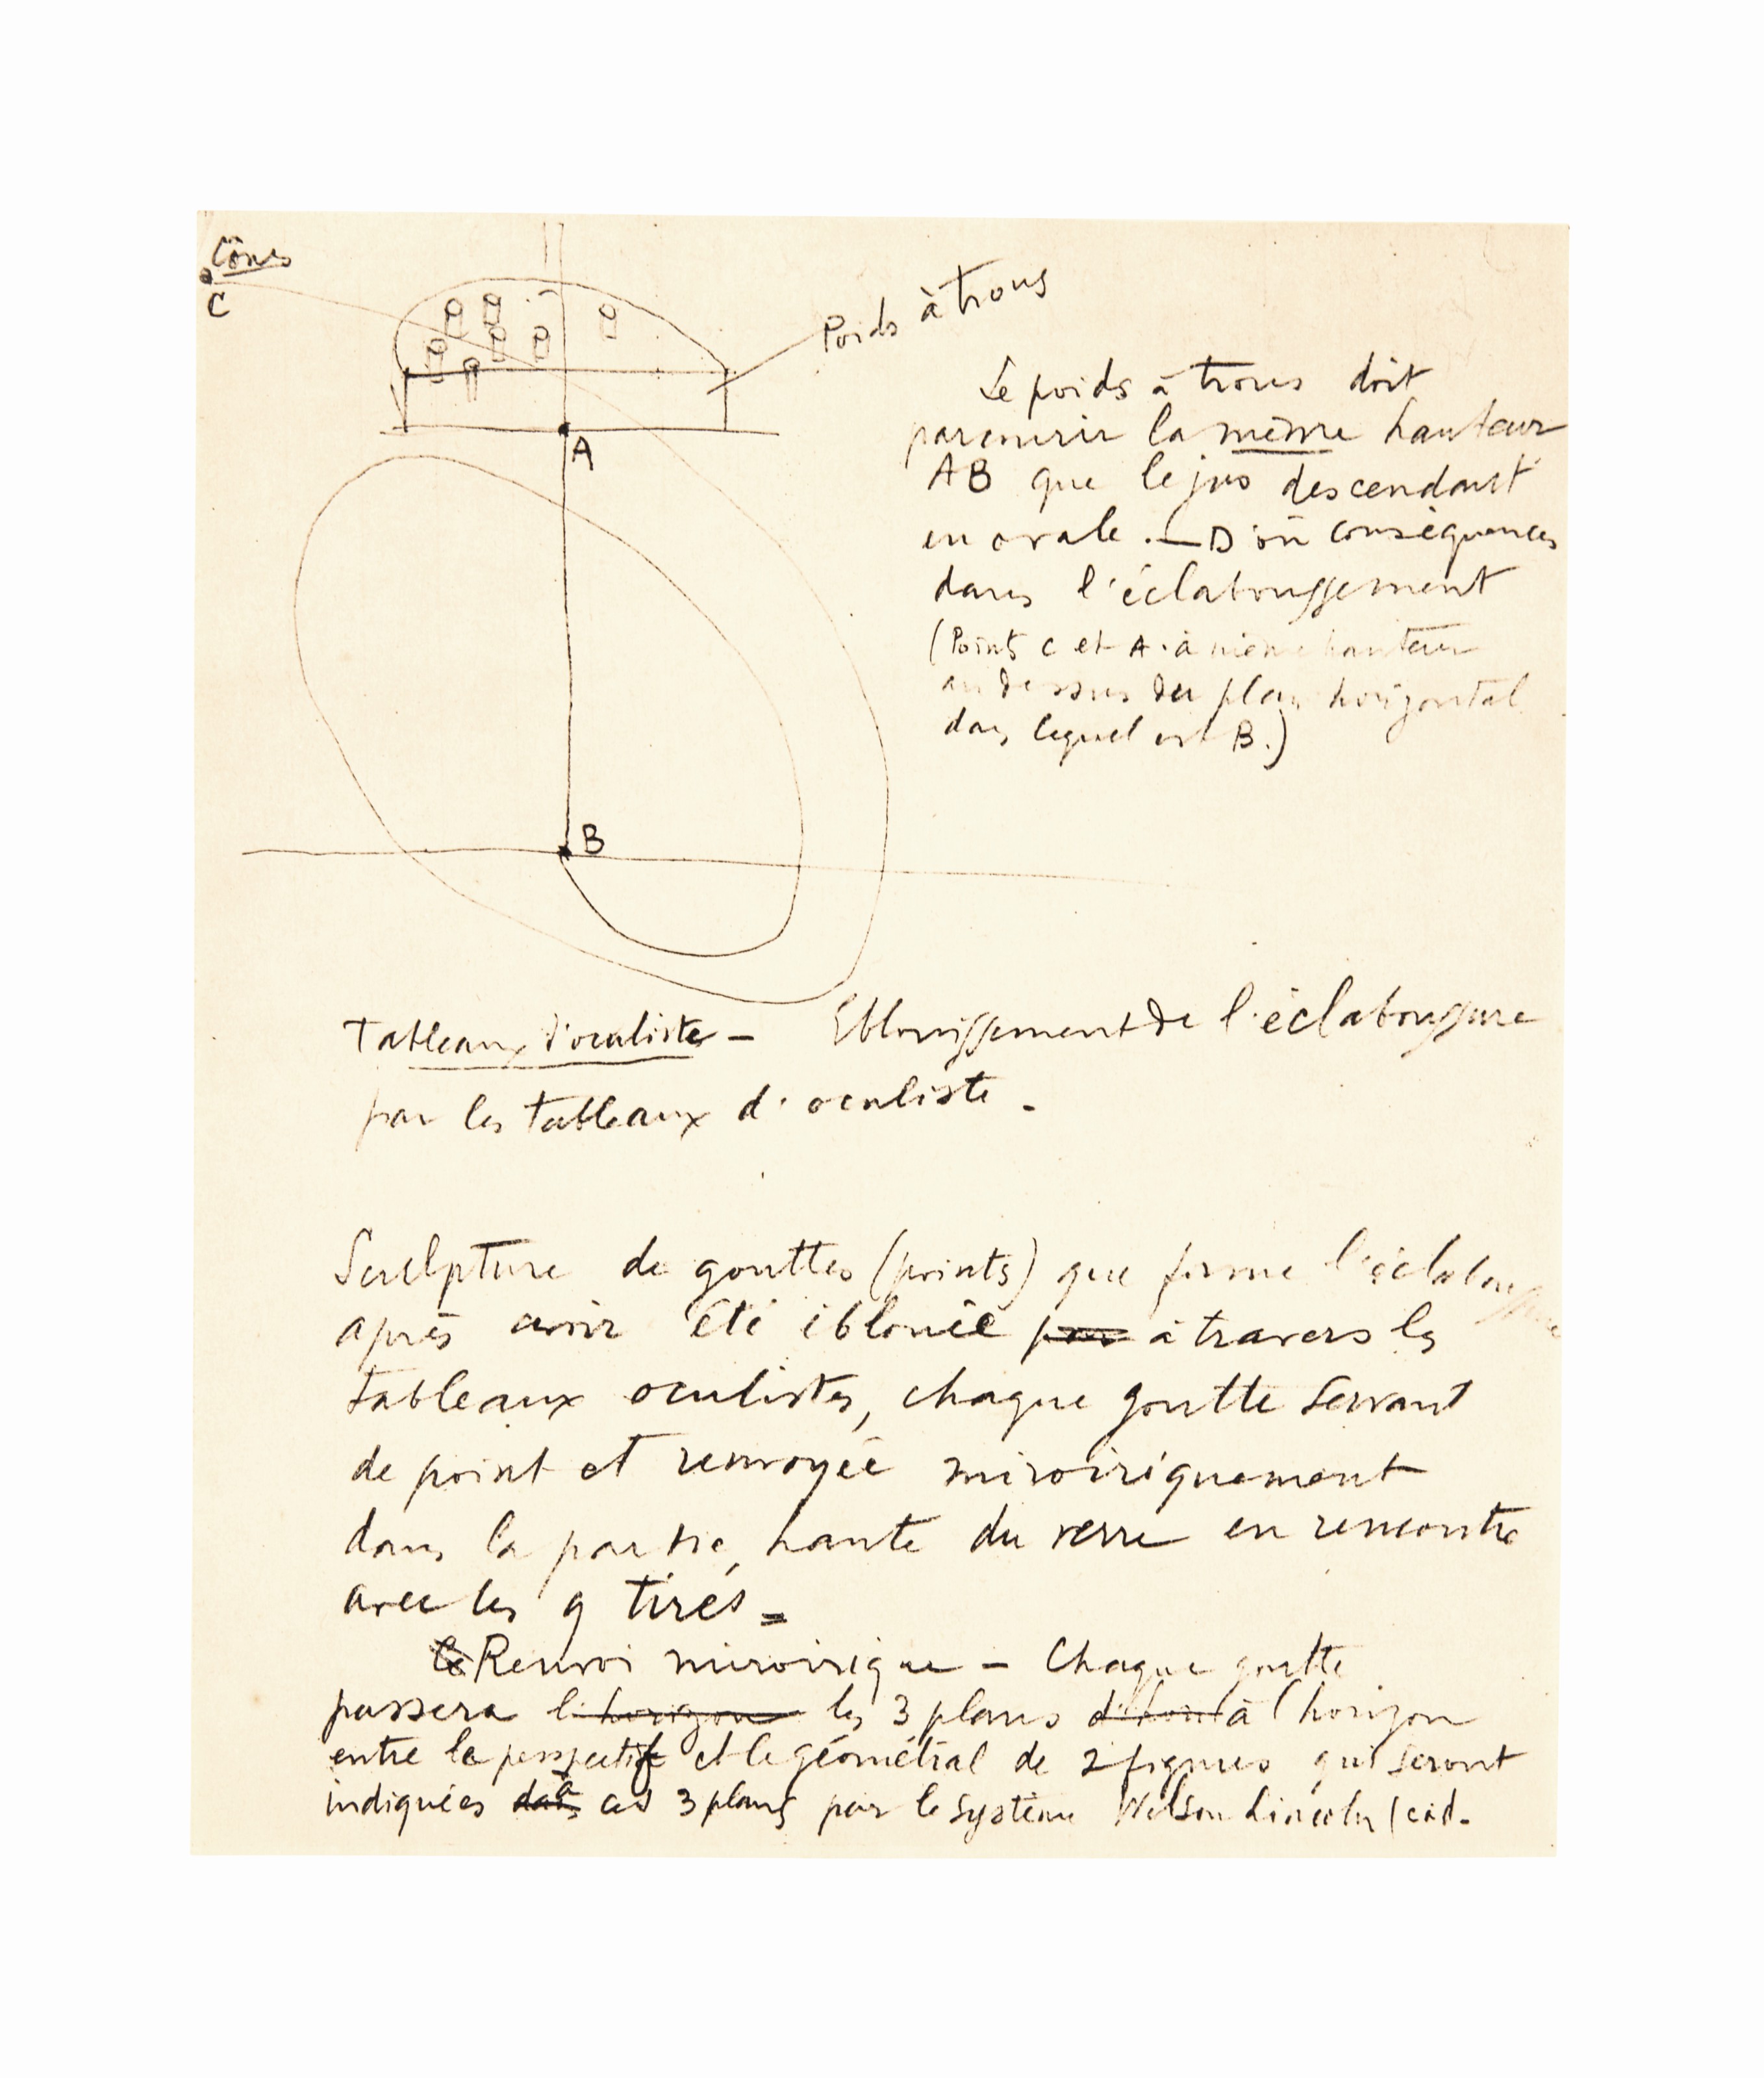 Cônes
C
Poids à trous
A
B
Le poids à trous doit
parcourir la même hauteur
AB que le jus descendant
en ovale. — D'où conséquences
dans l'éclaboussement
(Points C et A à même hauteur
au dessus du plan horizontal
dans lequel est B.)
Tableaux d'oculiste — Eblouissement de l'éclaboussure
par les tableaux d'oculiste.
Sculpture de gouttes (points) que forme l'éclaboussure
après avoir été éblouie par à travers les
tableaux oculistes, chaque goutte servant
de point et renvoyée miroiriquement
dans la partie haute du verre en rencontre
avec les 9 tirés =
Le Renvoi miroirique — Chaque goutte
passera l'horizon les 3 plans d'hori à l'horizon
entre le perspectif et le géométral de 2 figures qui seront
indiquées dans à ces 3 plans par le système Wilson Lincoln (càd.